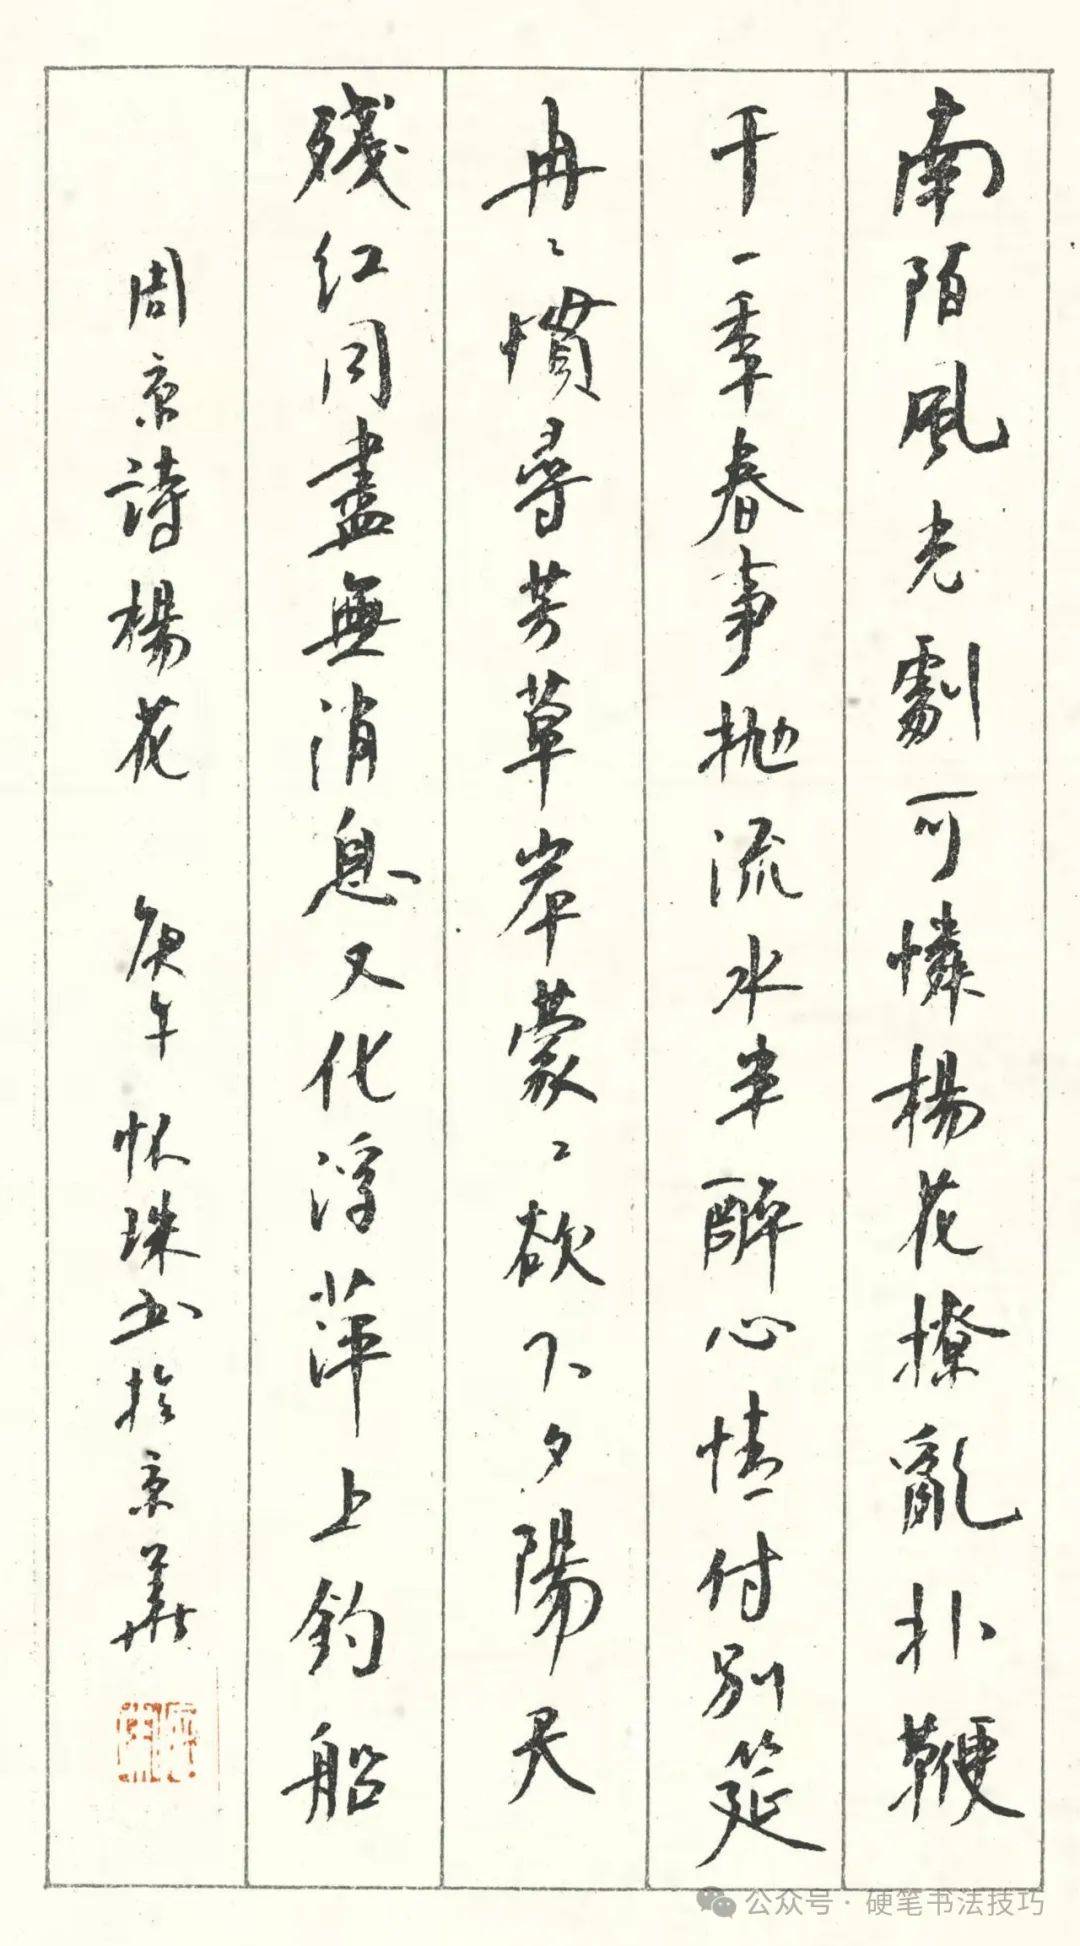 南陌風光劇可憐楊花撩亂扑鞭
干一季春事抛流水半醉心情付別筵
冉〻慣尋芳草岸蒙〻欲下夕陽天
殘紅同盡無消息又化浮萍上釣船
周京詩楊花 庚午 怀珠书於京華
公众号·硬笔书法技巧